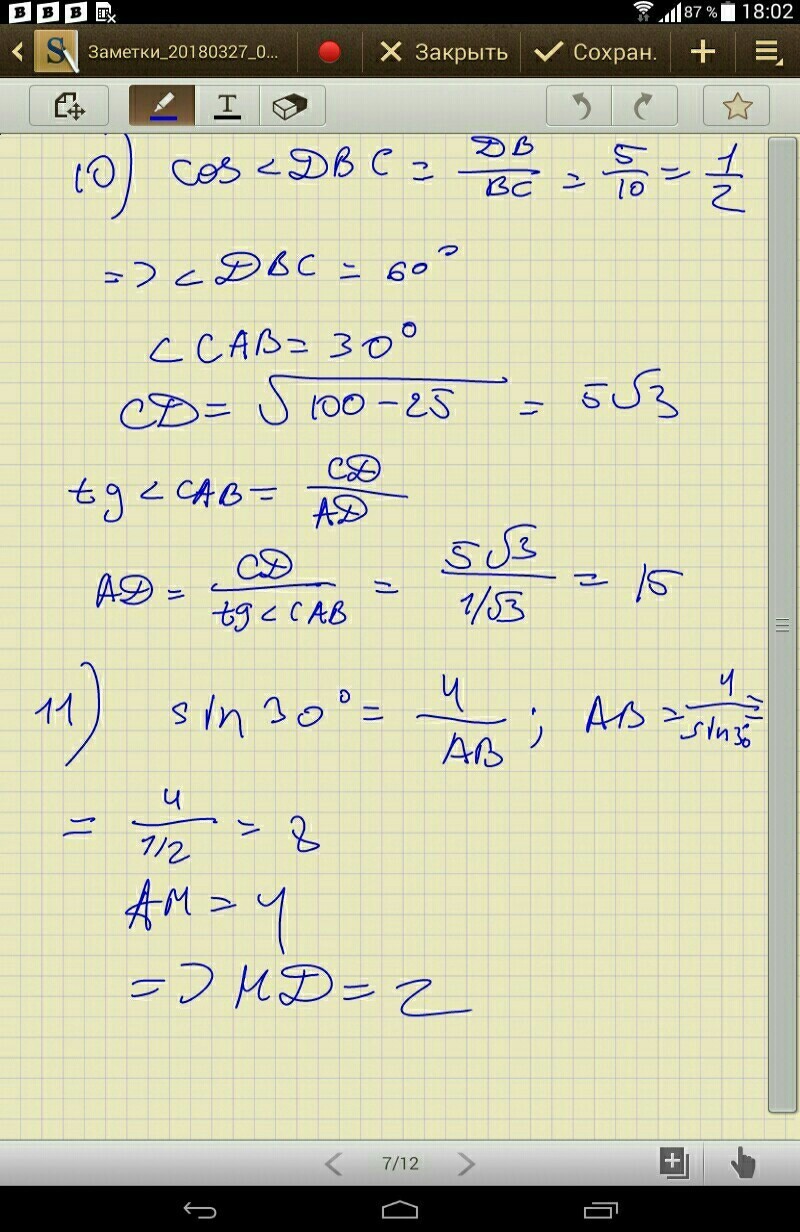 B B B 87 % 18:02
S Заметки_20180327_0... Закрыть Сохран.
T
10) cos <DBC = DB/BC = 5/10 = 1/2
=> <DBC = 60°
<CAB = 30°
CD = √100-25 = 5√3
tg <CAB = CD/AD
AD = CD/tg<CAB = 5√3/1/√3 = 15
11) sin 30° = 4/AB ; AB = 4/sin30° =
= 4/1/2 = 8
AM = 4
=> MD = 2
7/12